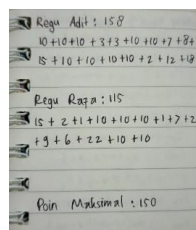 Regu Adit : 158
10+10+10 + 3+3+10+10+7+8+
15+10+10+10+10+2+12+18
Regu Raza : 115
15 + 2+1+10+10+10+1+7+2
+9+6+22+10+10
Poin Maksimal : 150